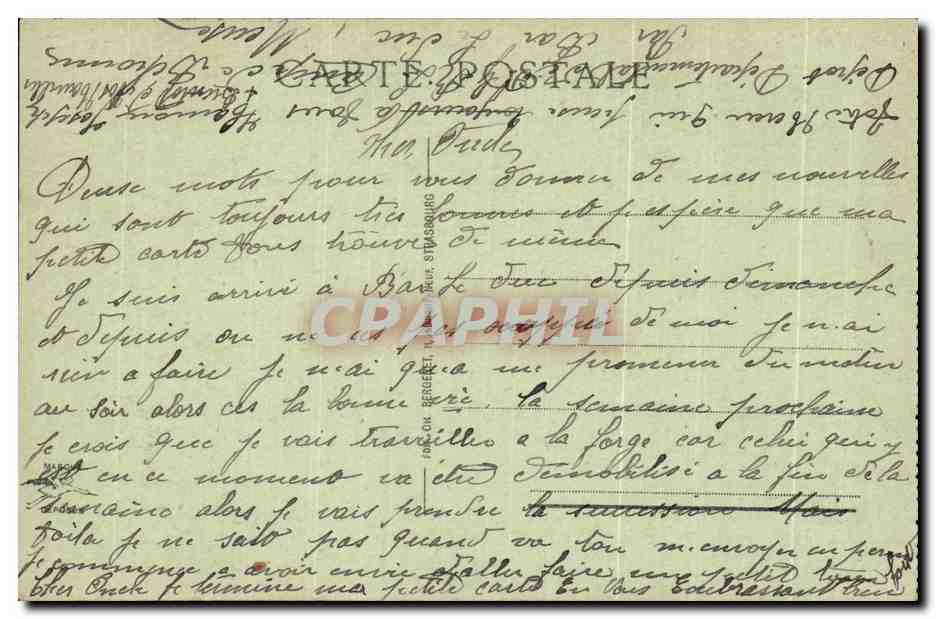 CARTE POSTALE
Cher Oncle
Deuse mots pour vous donner de mes nouvelles
qui sont toujours tres bonnes et j espère que ma
petite carte vous trouve de même
Je suis arrivé à Bar le duc depuis dimanche
et depuis on ne ces pas occupé de moi je n ai
rien a faire je n ai qua me promener du matin
au soir alors ces la bonne vie. la semaine prochaine
je crois que je vais travailler a la forge car celui qui y
est en ce moment va être démobilisé a la fin de la
semaine alors je vais prendre la succession Mais
voila je ne sait pas quand va ton m envoyer en perm
je commence a avoir envie d aller faire un petit tour
Cher Oncle je termine ma petite carte En Vous Embrassant bien
fort
Votre Neveu qui pense toujours a vous
Joseph
Dépot Départemental
Par Bar le Duc
Meuse
PHOT. CH. BERGERET, STRASBOURG
MARQUE
CPAPHIL